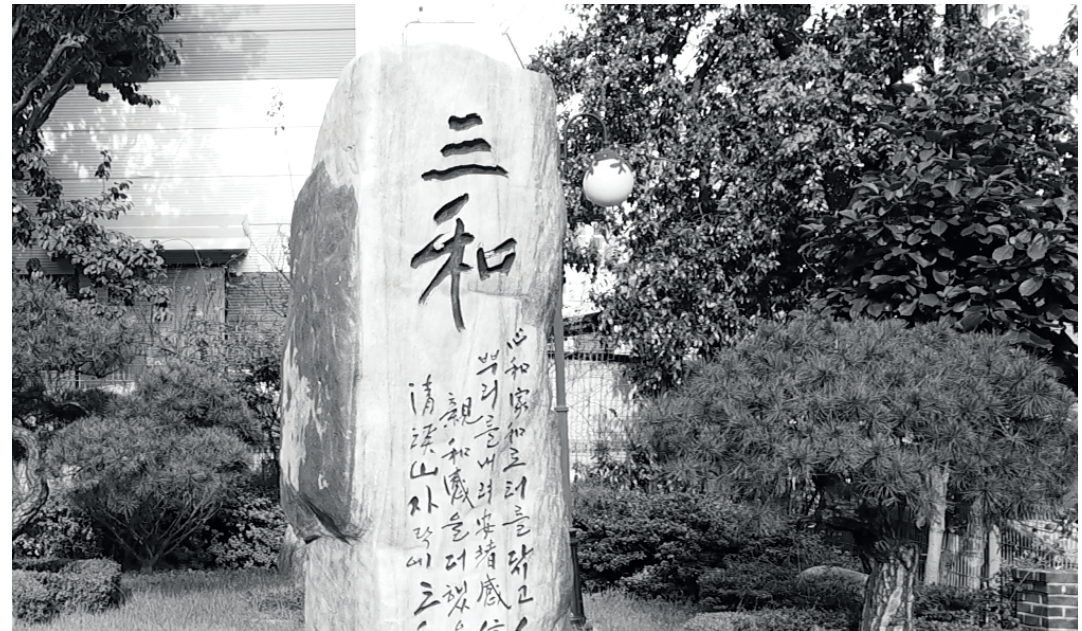 三和
心和家和로 터를 닦고
뿌리를 내려 安堵感
親和感을 더했
清溪山 자락에 三